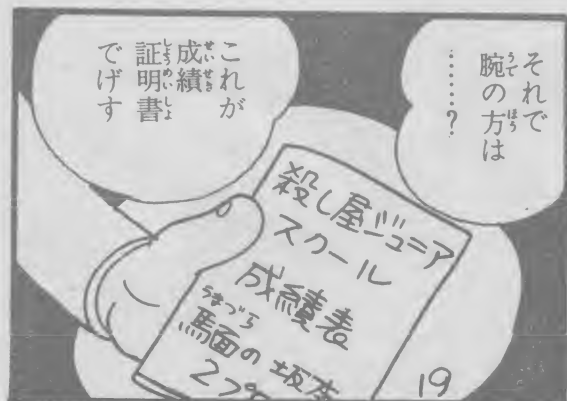 それで
腕の方は
……?
これが
成績
証明書
でげす
殺し屋ジュニア
スクール
成績表
馬面の坂本
19